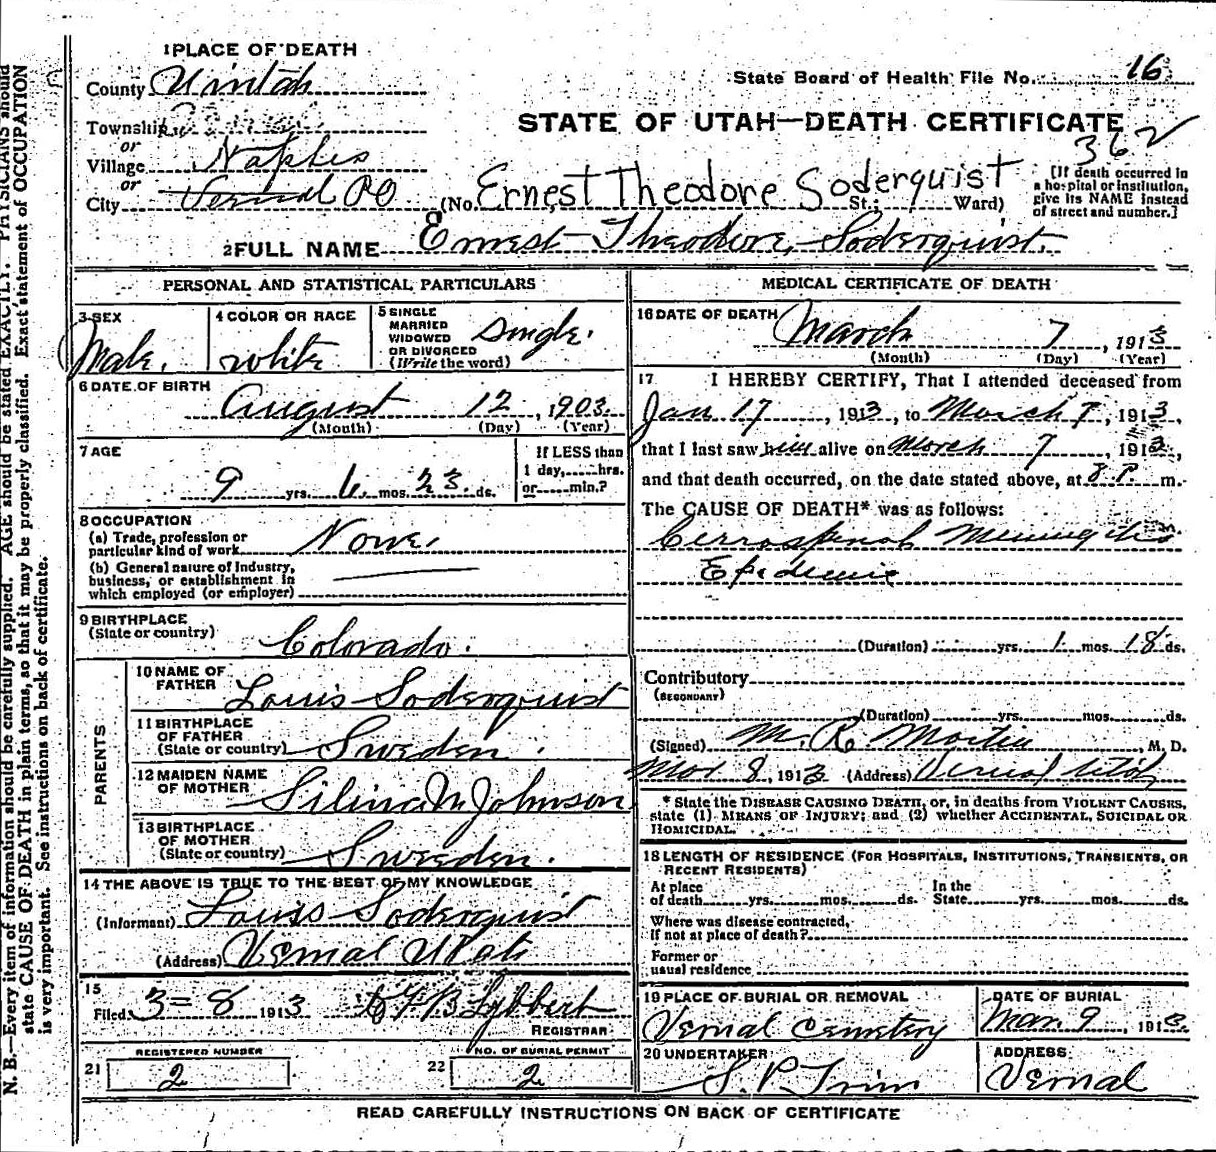 1 PLACE OF DEATH
County Uintah
State Board of Health File No. 16
Township
STATE OF UTAH—DEATH CERTIFICATE
or
362
Village Naples
or
City Vernal PO
(No. Ernest Theodore Soderquist St.; Ward)
[If death occurred in
a hospital or institution,
give its NAME instead
of street and number.]
2 FULL NAME Ernest Theodore Soderquist.
PERSONAL AND STATISTICAL PARTICULARS
3 SEX
Male.
4 COLOR OR RACE
white
5 SINGLE
MARRIED
WIDOWED
OR DIVORCED
(Write the word)
Single.
6 DATE OF BIRTH
August 12, 1903.
(Month) (Day) (Year)
7 AGE
9 yrs. 6 mos. 23 ds.
If LESS than
1 day, hrs.
or min.?
8 OCCUPATION
(a) Trade, profession or
particular kind of work None.
(b) General nature of Industry,
business, or establishment in
which employed (or employer)
9 BIRTHPLACE
(State or country)
Colorado.
PARENTS
10 NAME OF
FATHER
Louis Soderquist
11 BIRTHPLACE
OF FATHER
(State or country) Sweden.
12 MAIDEN NAME
OF MOTHER
Silina M Johnson
13 BIRTHPLACE
OF MOTHER
(State or country) Sweden.
14 THE ABOVE IS TRUE TO THE BEST OF MY KNOWLEDGE
(Informant) Louis Soderquist
(Address) Vernal Utah
15
Filed 3-8 1913 B Lybbert
REGISTRAR
REGISTERED NUMBER
21 2
NO. OF BURIAL PERMIT
22 2
MEDICAL CERTIFICATE OF DEATH
16 DATE OF DEATH
March 7, 1913
(Month) (Day) (Year)
17 I HEREBY CERTIFY, That I attended deceased from
Jan 17, 1913, to March 7, 1913,
that I last saw him alive on March 7, 1913,
and that death occurred, on the date stated above, at 8 P. m.
The CAUSE OF DEATH* was as follows:
Cerrospinal Meningitis
Epidemic
(Duration) yrs. 1 mos. 18 ds.
Contributory
(SECONDARY)
(Duration) yrs. mos. ds.
(Signed) M. R. , M. D.
Mar 8, 1913 (Address) Vernal Utah
* State the DISEASE CAUSING DEATH, or, in deaths from VIOLENT CAUSES,
state (1) MEANS OF INJURY; and (2) whether ACCIDENTAL, SUICIDAL OR
HOMICIDAL.
18 LENGTH OF RESIDENCE (FOR HOSPITALS, INSTITUTIONS, TRANSIENTS, OR
RECENT RESIDENTS)
At place
of death yrs. mos. ds.
In the
State yrs. mos. ds.
Where was disease contracted,
If not at place of death?
Former or
usual residence
19 PLACE OF BURIAL OR REMOVAL
Vernal Cemetery
DATE OF BURIAL
Mar. 9, 1913.
20 UNDERTAKER
S. P. Trim
ADDRESS
Vernal
READ CAREFULLY INSTRUCTIONS ON BACK OF CERTIFICATE
N. B.—Every item of information should be carefully supplied. AGE should be stated EXACTLY. PHYSICIANS should
state CAUSE OF DEATH in plain terms, so that it may be properly classified. Exact statement of OCCUPATION
is very important. See instructions on back of certificate.